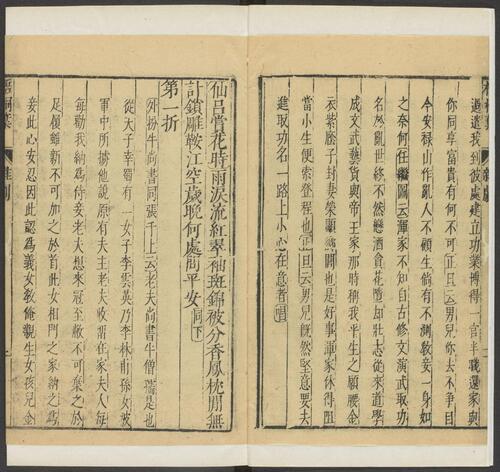 過遣我到彼處建立功業博得一官半職還家與
你同享富貴有何不可正旦云男兒你去不爭目
今安祿山作亂人不顧生倘有不測教妾一身如
之奈何任繼圖云渾家不知自古修文演武取功
名於亂世終不然戀酒貪花墮却壯志從來道學
成文武藝貨與帝王家那時稱我平生之願腰金
衣紫廕子封妻榮顯鄉閭也是好事渾家休得阻
當小生便索登程也正旦云男兒旣然堅意要去
進取功名一路上小心在意者唱
仙呂賞花時雨淚流紅翠袖斑錦被分香鳳枕閒無
計鎖雕鞍江空歲晚何處問平安同下
第一折
外扮牛尚書同張千上云老夫尚書牛僧孺是也
從天子幸蜀有一女子李雲英乃李林甫孫女被
軍中所擄他說原有夫主老夫收留在家夫人每
每勸我納爲侍妾老夫想來冠至敝不可棄之於
足履雖新不可加之於首此女相門之家納之爲
妾此心安忍因此認爲義女敎俺親生女孩兒金